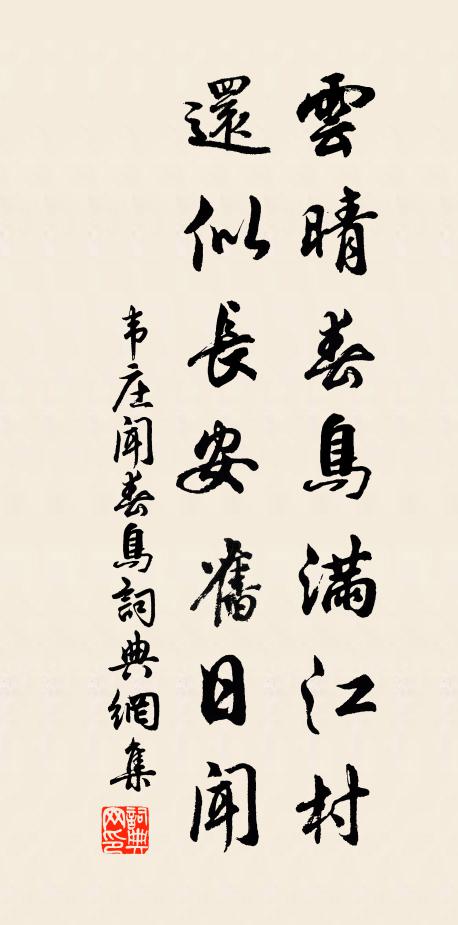 雲晴春鳥滿江村
還似長安舊日聞
韦庄聞春鳥詞典網集
詞典网印